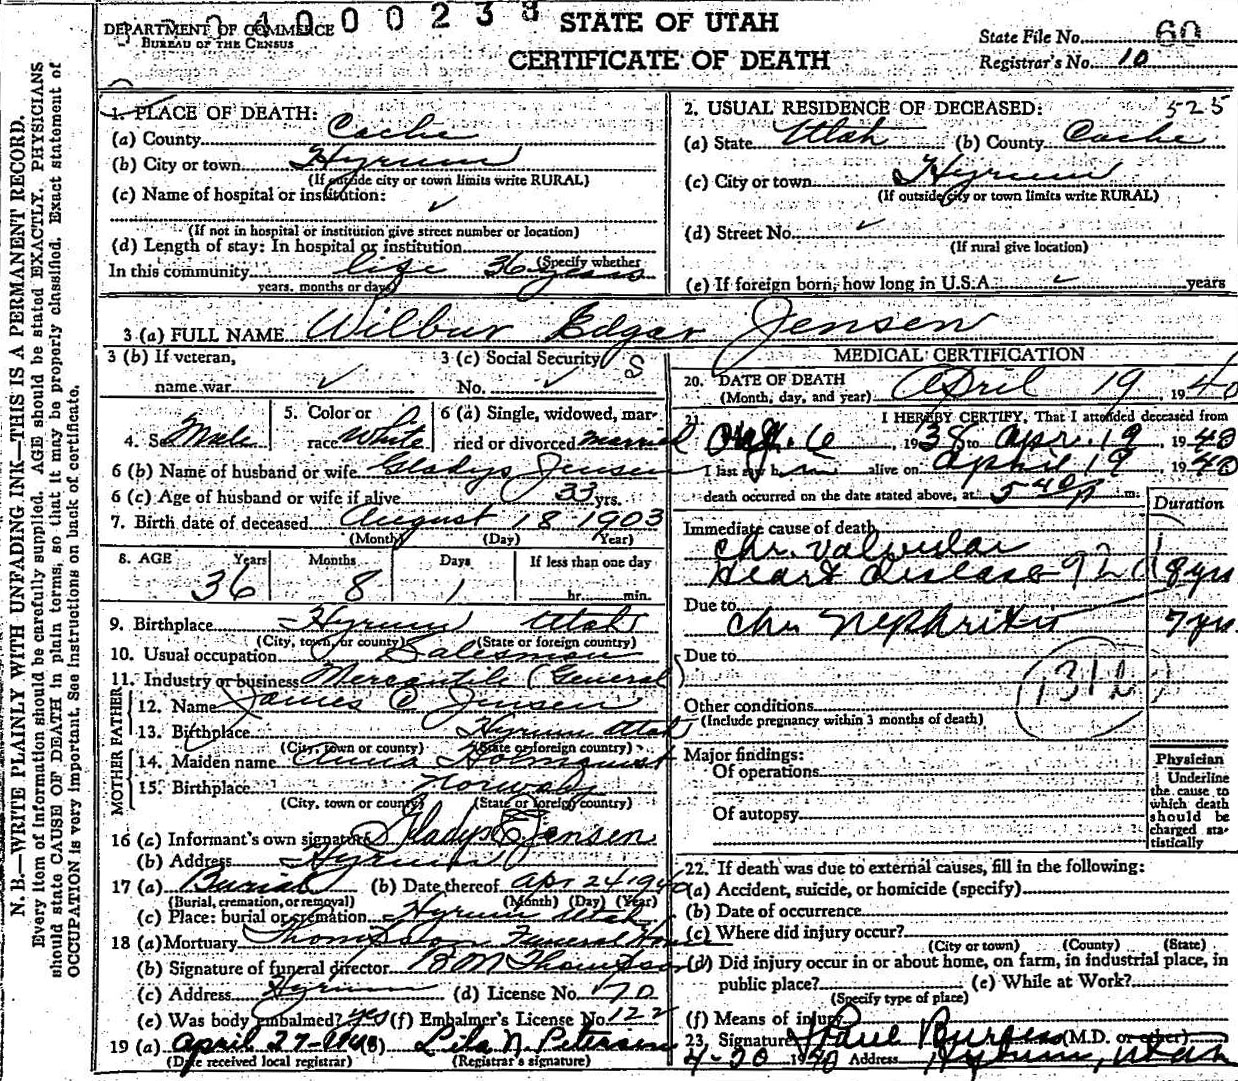 DEPARTMENT OF COMMERCE
BUREAU OF THE CENSUS
STATE OF UTAH
CERTIFICATE OF DEATH
State File No. 60
Registrar's No. 10
N. B.—WRITE PLAINLY WITH UNFADING INK—THIS IS A PERMANENT RECORD.
Every item of information should be carefully supplied. AGE should be stated EXACTLY. PHYSICIANS
should state CAUSE OF DEATH in plain terms, so that it may be properly classified. Exact statement of
OCCUPATION is very important. See instructions on back of certificate.
1. PLACE OF DEATH:
(a) County Cache
(b) City or town Hyrum
(If outside city or town limits write RURAL)
(c) Name of hospital or institution: ✓
(If not in hospital or institution give street number or location)
(d) Length of stay: In hospital or institution
(Specify whether
In this community life 36 years
years, months or days)
2. USUAL RESIDENCE OF DECEASED: 525
(a) State Utah (b) County Cache
(c) City or town Hyrum
(If outside city or town limits write RURAL)
(d) Street No. ✓
(If rural give location)
(e) If foreign born, how long in U.S.A. ✓ years
3 (a) FULL NAME Wilbur Edgar Jensen
3 (b) If veteran,
name war ✓
3 (c) Social Security
No. ✓
4. Sex Male
5. Color or
race White
6 (a) Single, widowed, mar-
ried or divorced married
6 (b) Name of husband or wife Gladys Jensen
6 (c) Age of husband or wife if alive 33 yrs.
7. Birth date of deceased August 18 1903
(Month) (Day) (Year)
8. AGE Years Months Days If less than one day
36 8 1 hr. min.
9. Birthplace Hyrum Utah
(City, town, or county) (State or foreign country)
10. Usual occupation Salesman
11. Industry or business Mercantile (General)
FATHER
12. Name James C Jensen
13. Birthplace Hyrum Utah
(City, town or county) (State or foreign country)
MOTHER
14. Maiden name Anna Holmquist
15. Birthplace Norway
(City, town or county) (State or foreign country)
16 (a) Informant's own signature Gladys E Jensen
(b) Address Hyrum
17 (a) Burial (b) Date thereof Apr 24 1940
(Burial, cremation, or removal) (Month) (Day) (Year)
(c) Place: burial or cremation Hyrum Utah
18 (a) Mortuary Thompson Funeral Home
(b) Signature of funeral director B M Thompson
(c) Address Hyrum (d) License No. 70
(e) Was body embalmed? yes (f) Embalmer's License No. 122
19 (a) April 27- (b) Lila N. Petersen
(Date received local registrar) (Registrar's signature)
MEDICAL CERTIFICATION
20. DATE OF DEATH
(Month, day, and year) April 19, 1940
21. I HEREBY CERTIFY, That I attended deceased from
6, 1938 to Apr. 19, 1940
I last saw him alive on April 19, 1940
death occurred on the date stated above, at 5 40 P m.
Duration
Immediate cause of death
Chr. Valvular
Heart disease 92 8 yrs
Due to
Chr Nephritis 7 yrs
Due to
131
Other conditions
(Include pregnancy within 3 months of death)
Major findings:
Of operations
Of autopsy
Physician
Underline
the cause to
which death
should be
charged sta-
tistically
22. If death was due to external causes, fill in the following:
(a) Accident, suicide, or homicide (specify)
(b) Date of occurrence
(c) Where did injury occur?
(City or town) (County) (State)
(d) Did injury occur in or about home, on farm, in industrial place, in
public place? (e) While at Work?
(Specify type of place)
(f) Means of injury
23. Signature Paul Burgess (M.D. or other)
4-20 1940 Address Hyrum, Utah